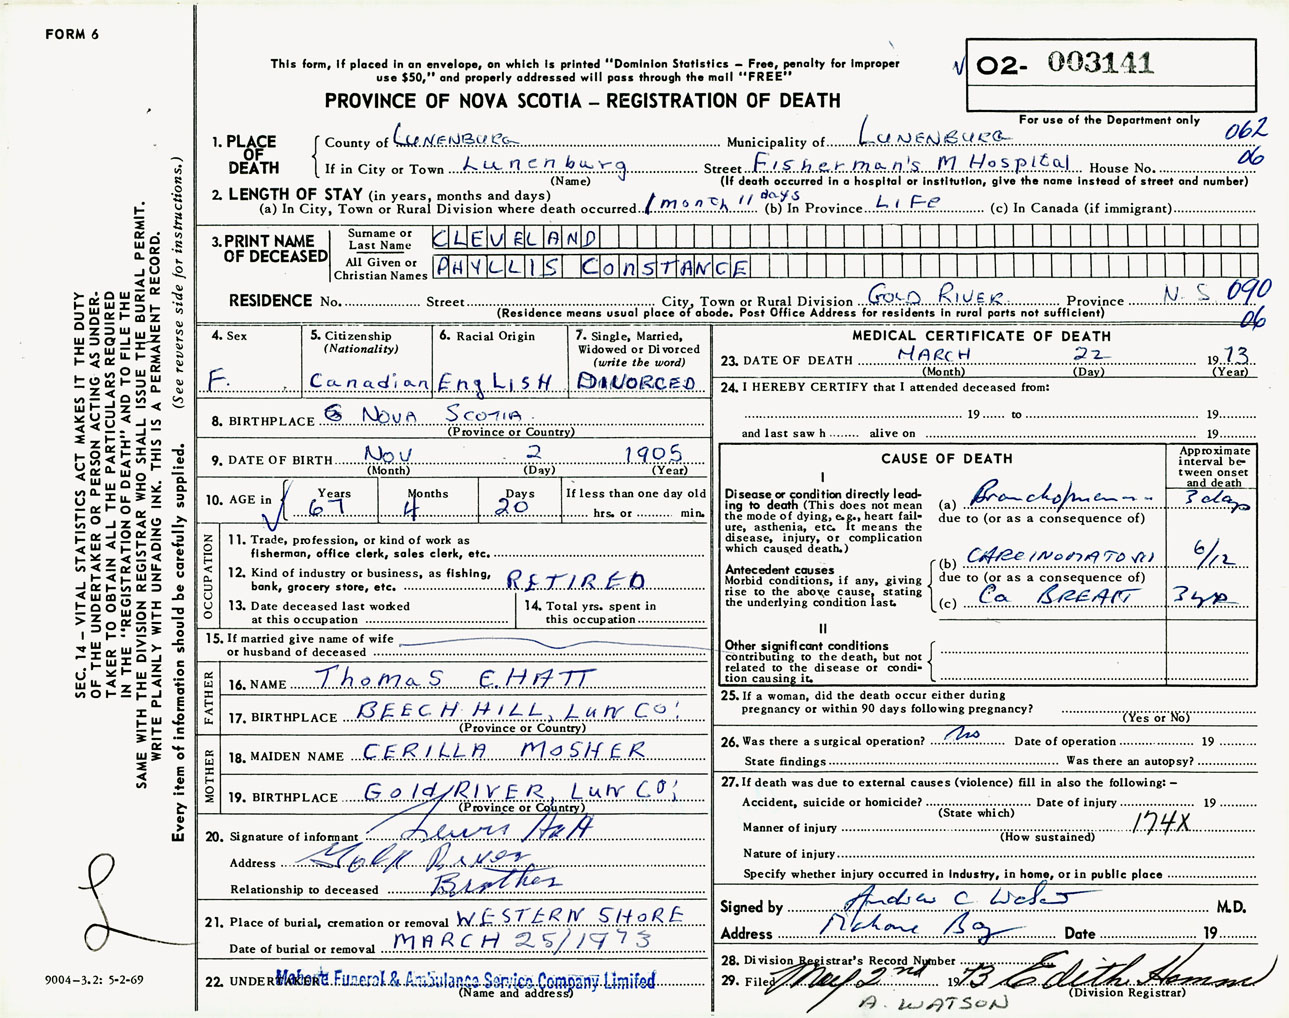 FORM 6
This form, if placed in an envelope, on which is printed "Dominion Statistics – Free, penalty for improper
use $50," and properly addressed will pass through the mail "FREE"
PROVINCE OF NOVA SCOTIA – REGISTRATION OF DEATH
O2- 003141
For use of the Department only
062
06
1. PLACE OF DEATH
County of LUNENBURG Municipality of LUNENBURG
If in City or Town Lunenburg Street Fisherman's M Hospital House No.
(Name) (If death occurred in a hospital or institution, give the name instead of street and number)
2. LENGTH OF STAY (in years, months and days)
(a) In City, Town or Rural Division where death occurred 1 month 11 days (b) In Province LIFE (c) In Canada (if immigrant)
3. PRINT NAME OF DECEASED
Surname or Last Name CLEVELAND
All Given or Christian Names PHYLLIS CONSTANCE
RESIDENCE No. Street City, Town or Rural Division GOLD RIVER Province N.S. 090
(Residence means usual place of abode. Post Office Address for residents in rural parts not sufficient) 06
4. Sex
F.
5. Citizenship
(Nationality)
Canadian
6. Racial Origin
EngLISH
7. Single, Married,
Widowed or Divorced
(write the word)
DIVORCED
8. BIRTHPLACE NOVA SCOTIA
(Province or Country)
9. DATE OF BIRTH NOV 2 1905
(Month) (Day) (Year)
10. AGE in Years Months Days If less than one day old
67 4 20 hrs. or min.
OCCUPATION
11. Trade, profession, or kind of work as
fisherman, office clerk, sales clerk, etc.
12. Kind of industry or business, as fishing,
bank, grocery store, etc. RETIRED
13. Date deceased last worked
at this occupation
14. Total yrs. spent in
this occupation
15. If married give name of wife
or husband of deceased
FATHER
16. NAME Thomas E. HATT
17. BIRTHPLACE BEECH HILL, LUN CO!
(Province or Country)
MOTHER
18. MAIDEN NAME CERILLA MOSHER
19. BIRTHPLACE Gold RIVER, LUN CO!
(Province or Country)
20. Signature of informant Lewis Hatt
Address Gold River
Relationship to deceased Brother
21. Place of burial, cremation or removal WESTERN SHORE
Date of burial or removal MARCH 25/1973
22. UNDERTAKER Mahone Funeral & Ambulance Service Company Limited
(Name and address)
MEDICAL CERTIFICATE OF DEATH
23. DATE OF DEATH MARCH 22 1973
(Month) (Day) (Year)
24. I HEREBY CERTIFY that I attended deceased from:
19 to 19
and last saw h alive on 19
CAUSE OF DEATH
Approximate
interval be-
tween onset
and death
I
Disease or condition directly lead-
ing to death (This does not mean
the mode of dying, e.g., heart fail-
ure, asthenia, etc. It means the
disease, injury, or complication
which caused death.)
(a) 3 days
due to (or as a consequence of)
Antecedent causes
Morbid conditions, if any, giving
rise to the above cause, stating
the underlying condition last.
(b) CARCINOMATOSIS 6/12
due to (or as a consequence of)
(c) Ca BREAST 3 yrs
II
Other significant conditions
contributing to the death, but not
related to the disease or condi-
tion causing it.
25. If a woman, did the death occur either during
pregnancy or within 90 days following pregnancy?
(Yes or No)
26. Was there a surgical operation? No Date of operation 19
State findings Was there an autopsy?
27. If death was due to external causes (violence) fill in also the following: –
Accident, suicide or homicide? Date of injury 19
(State which)
Manner of injury 174X
(How sustained)
Nature of injury
Specify whether injury occurred in Industry, in home, or in public place
Signed by Andrew C. Watson M.D.
Address Mahone Bay Date 19
28. Division Registrar's Record Number
29. Filed May 2nd 1973 Edith
(Division Registrar)
A. WATSON
SEC. 14 – VITAL STATISTICS ACT MAKES IT THE DUTY
OF THE UNDERTAKER OR PERSON ACTING AS UNDER-
TAKER TO OBTAIN ALL THE PARTICULARS REQUIRED
IN THE "REGISTRATION OF DEATH" AND TO FILE THE
SAME WITH THE DIVISION REGISTRAR WHO SHALL ISSUE THE BURIAL PERMIT.
WRITE PLAINLY WITH UNFADING INK. THIS IS A PERMANENT RECORD.
Every item of information should be carefully supplied. (See reverse side for instructions.)
L
9004–3.2: 5-2-69